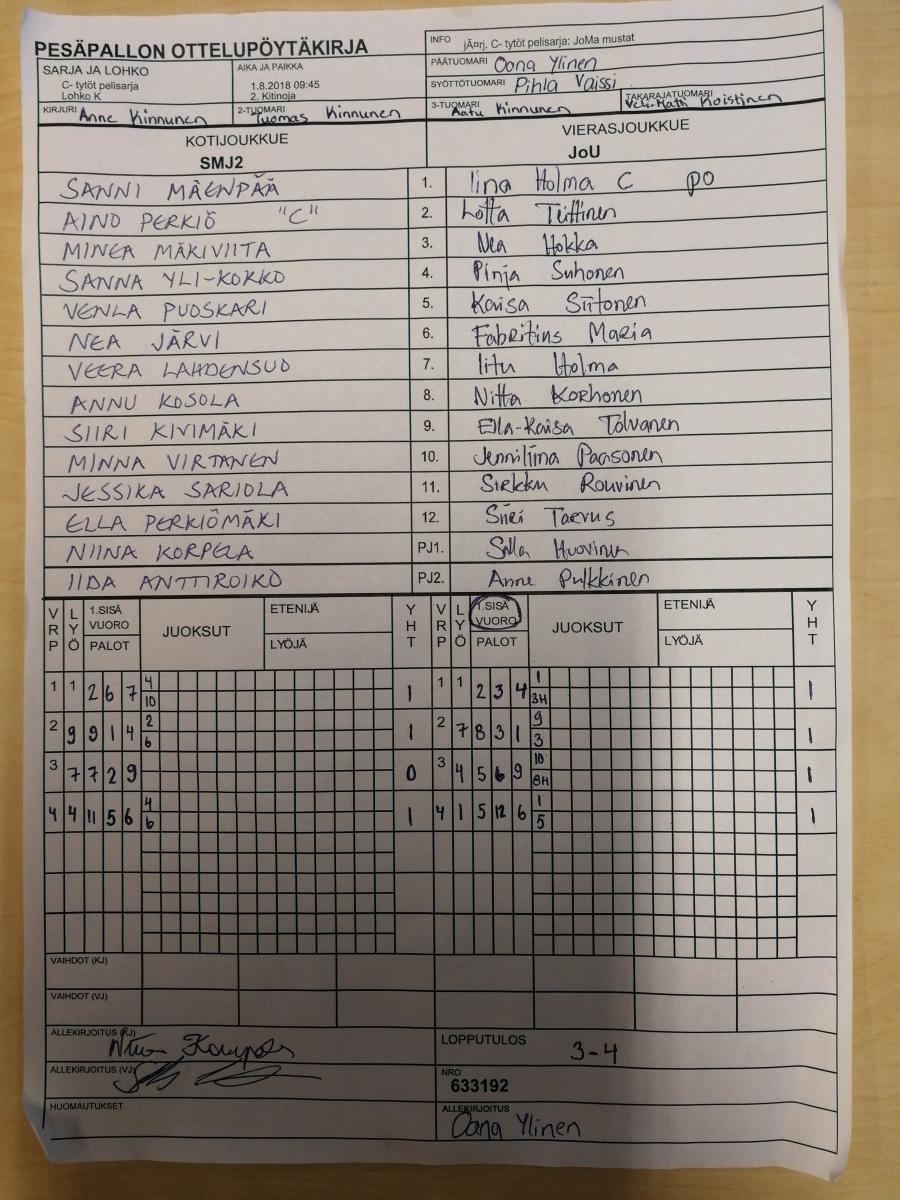 PESÄPALLON OTTELUPÖYTÄKIRJA
INFO jÃ¤rj. C- tytöt pelisarja: JoMa mustat
PÄÄTUOMARI Oona Ylinen
SYÖTTÖTUOMARI Pihla Vaissi
SARJA JA LOHKO
C- tytöt pelisarja
Lohko K
AIKA JA PAIKKA
1.8.2018 09:45
2. Kitinoja
KIRJURI Anne Kinnunen
2-TUOMARI Tuomas Kinnunen
3-TUOMARI Aatu Kinnunen
TAKARAJATUOMARI Veli-Matti Koistinen
KOTIJOUKKUE VIERASJOUKKUE
SMJ2 JoU
SANNI MÄENPÄÄ 1. Iina Holma C PO
AINO PERKIÖ "C" 2. Lotta Teittinen
MINEA MÄKIVIITA 3. Nea Hokka
SANNA YLI-KOKKO 4. Pinja Suhonen
VENLA PUOSKARI 5. Kaisa Siitonen
NEA JÄRVI 6. Fabritius Maria
VEERA LAHDENSUO 7. Iitu Holma
ANNU KOSOLA 8. Nitta Korhonen
SIIRI KIVIMÄKI 9. Ella-Kaisa Tolvanen
MINNA VIRTANEN 10. Jenniliina Paasonen
JESSIKA SARIOLA 11. Sirkku Rouvinen
ELLA PERKIÖMÄKI 12. Siiri Tarvus
NIINA KORPELA PJ1. Salla Huovinen
IIDA ANTTIROIKO PJ2. Anne Pulkkinen
VRP LYÖ 1.SISÄ VUORO PALOT JUOKSUT ETENIJÄ LYÖJÄ YHT VRP LYÖ 1.SISÄ VUORO PALOT JUOKSUT ETENIJÄ LYÖJÄ YHT
1 1 2 6 7 4 10 1 1 1 2 3 4 1 3H 1
2 9 9 1 4 2 6 1 2 7 8 3 1 9 3 1
3 7 7 2 9 0 3 4 5 6 9 10 8H 1
4 4 11 5 6 4 6 1 4 1 5 12 6 1 5 1
VAIHDOT (KJ)
VAIHDOT (VJ)
ALLEKIRJOITUS (KJ)
LOPPUTULOS 3-4
ALLEKIRJOITUS (VJ)
NRO
633192
HUOMAUTUKSET
ALLEKIRJOITUS
Oona Ylinen